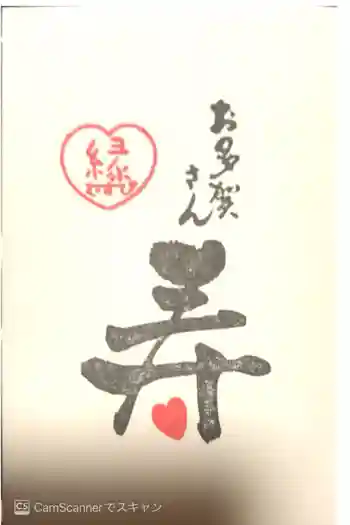 お多賀
さん
縁
むすび
寿
CamScannerでスキャン